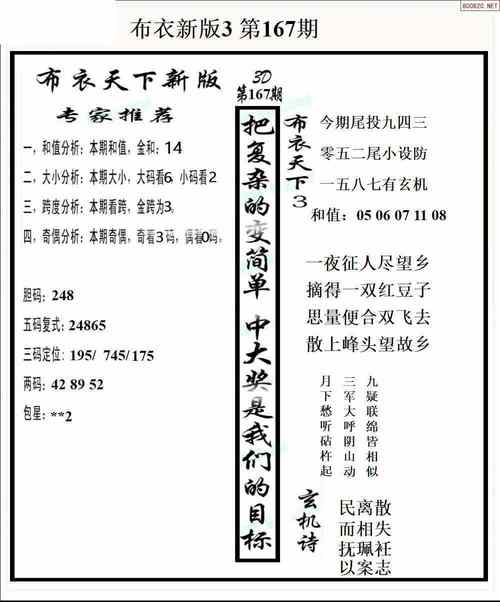 800820.NET
布衣新版3 第167期
布衣天下新版
专家推荐
一，和值分析：本期和值，金和：14
二，大小分析：本期大小，大码看6，小码看2
三，跨度分析：本期看跨，金跨为3，
四，奇偶分析：本期奇偶，奇看3码，偶看0码，
胆码：248
五码复式：24865
三码定位：195/ 745/175
两码：42 89 52
包星：**2
3D
第167期
把复杂的变简单 中大奖是我们的目标
布衣天下3
今期尾投九四三
零五二尾小设防
一五八七有玄机
和值：05 06 07 11 08
一夜征人尽望乡
摘得一双红豆子
思量便合双飞去
散上峰头望故乡
月三九
下军疑
愁大联
听呼绵
砧阴皆
杵山相
起动似
玄机诗
民离散
而相失
抚珮衽
以案志